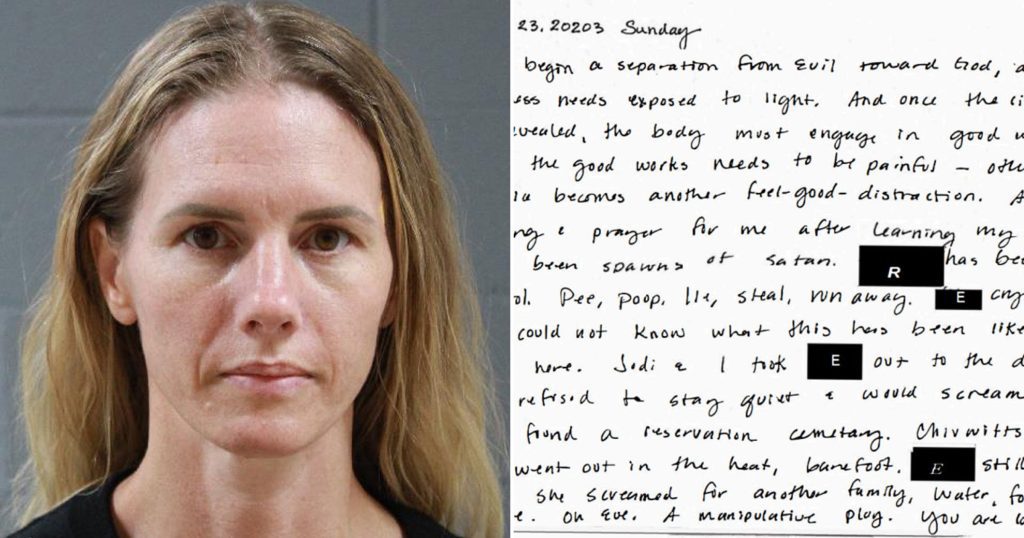 23, 20203 Sunday
begin a separation from Evil toward God,
ess needs exposed to light. And once the
evealed, the body must engage in good
the good works needs to be painful –
becomes another feel-good-distraction.
ng & prayer for me after learning my
been spawns of satan. R has bee
ol. Pee, poop, lie, steal, run away. E cry
could not know what this has been like
here. Jodi & I took E out to the d
refused to stay quiet & would scream
found a reservation cemetary. Chivwitts
went out in the heat, barefoot. E still
she screamed for another family, water, fo
e. On Eve. A manipulative plug. You are